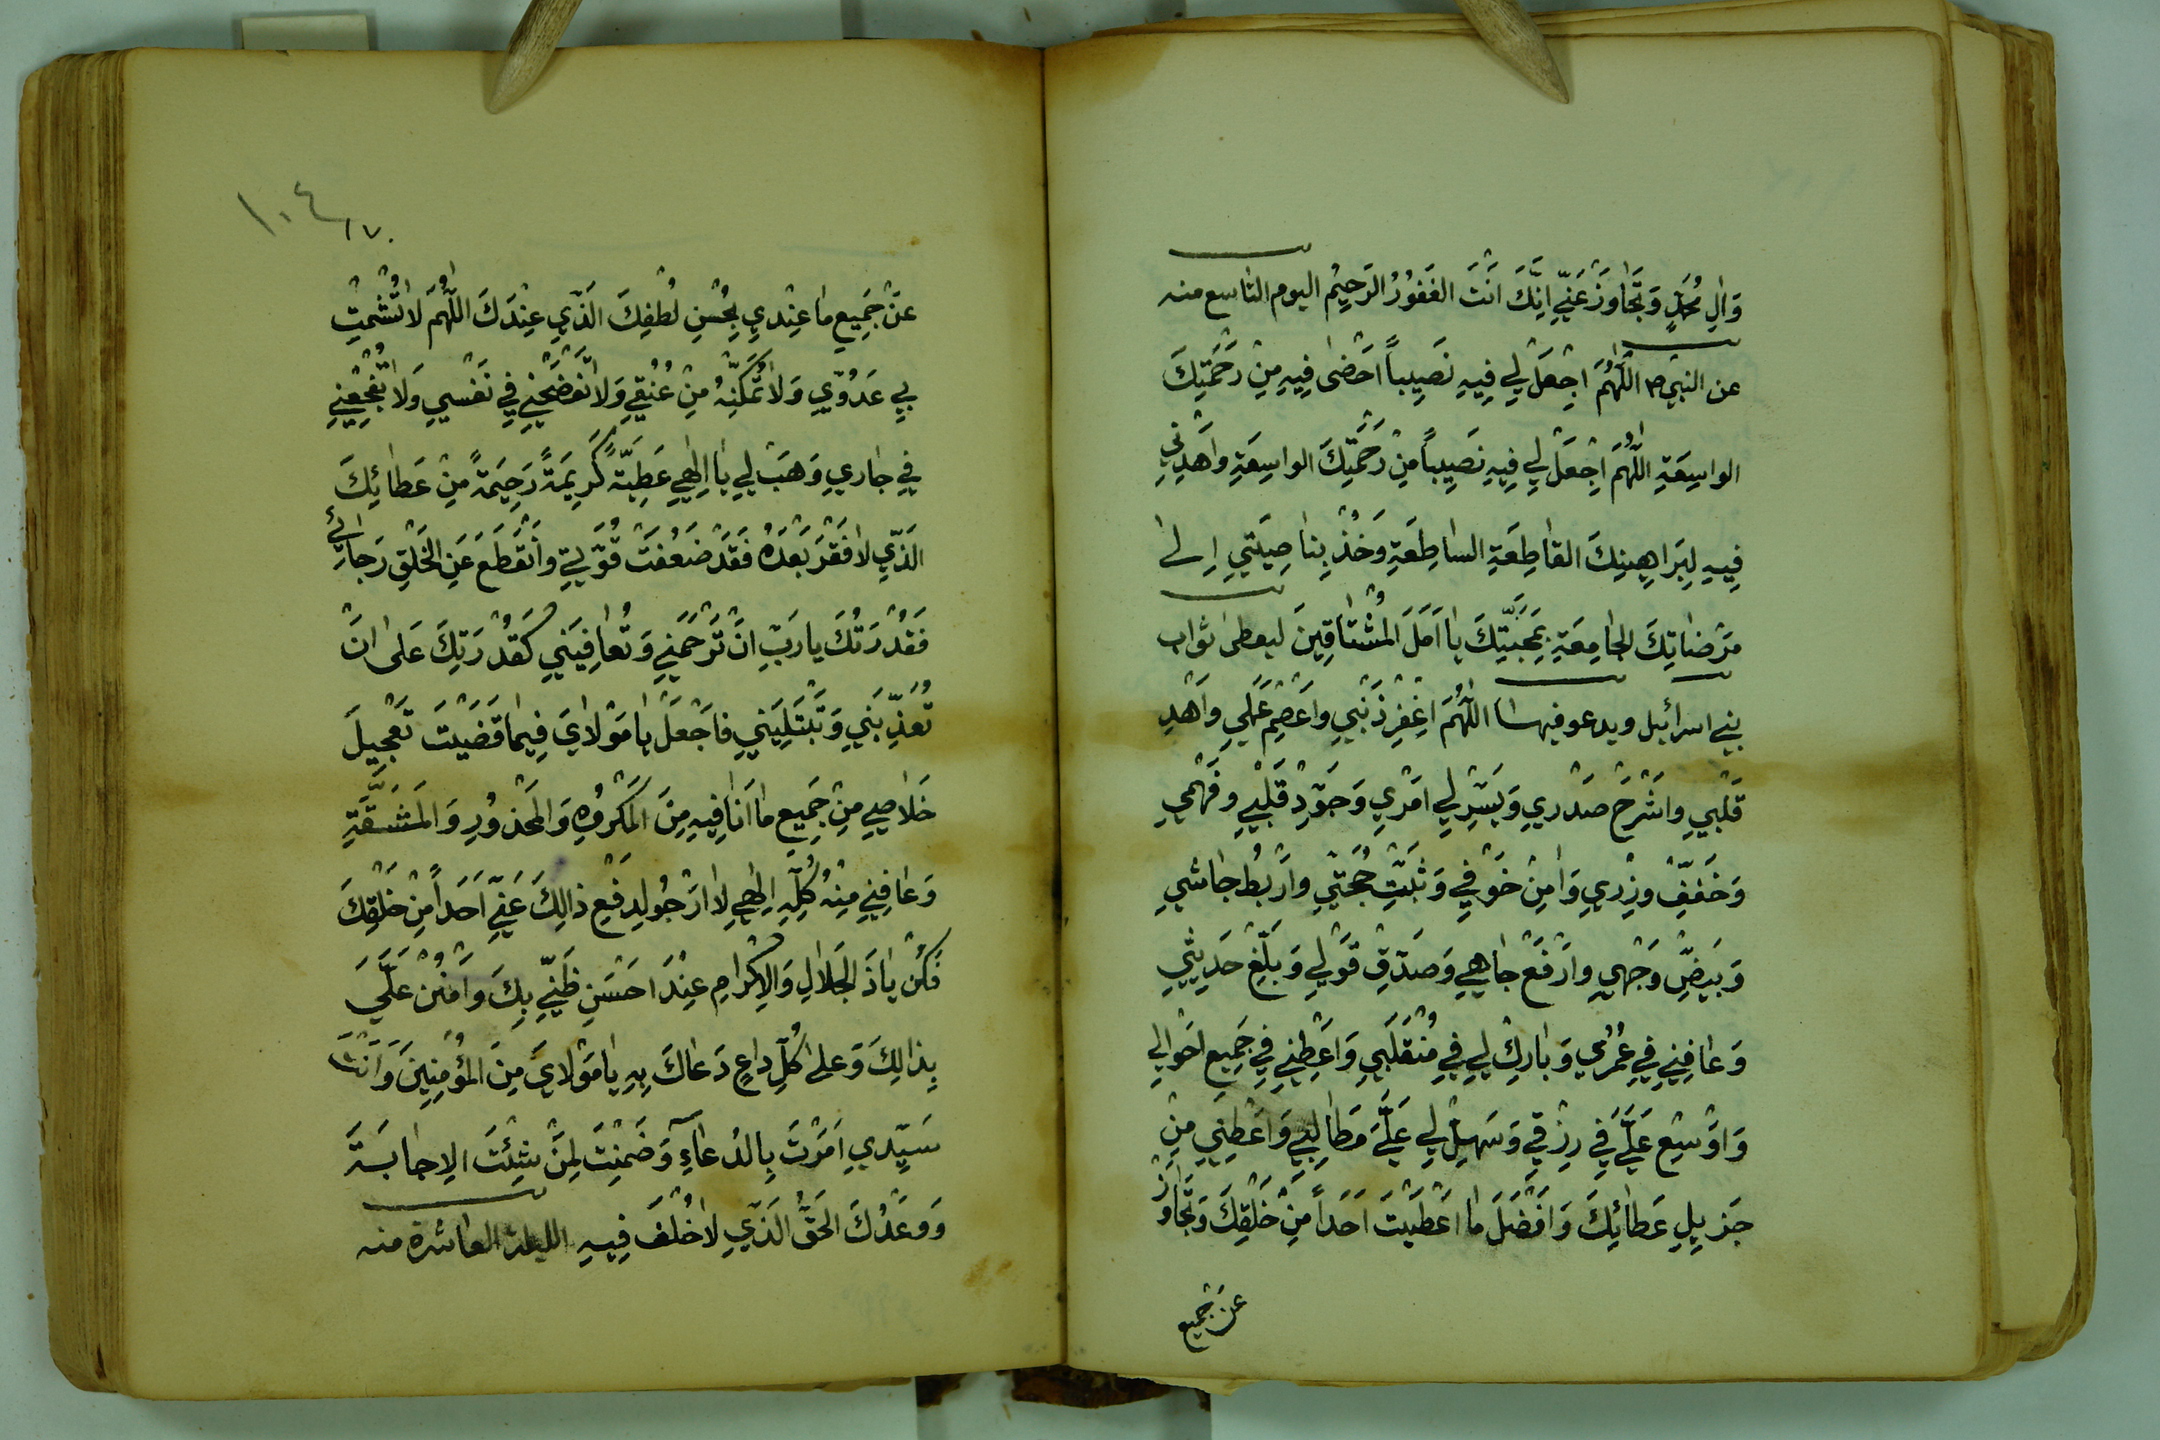 وَالِ مُحَمَّدٍ وَتَجٰاوَزْ عَنّيِ اِنَّكَ اَنْتَ الغَفُورُ الرَحيِمُ اليوم التاسع منه
عن النبي ص اللّٰهُمَّ اجِعَلْ لِي فِيهِ نَصِيباً اَحْضىٰ فِيهِ مِنْ رَحْمَتِكَ
الواسِعَةِ اللّٰهُمَّ اجِعَلْ لِي فِيهِ نَصِيباً مِنْ رَحْمَتِكَ الواسِعَةِ واَهْدِنيِ
فِيهِ لِبَراهِينِكَ القٰاطِعَةِ السٰاطِعَةِ وَخُذْ بِنٰاصِيَتيِ اِلىٰ
مَرْضٰاتِكَ الجٰامِعَةِ بِمَحَبَّتِكَ يٰا اَمَلَ المُشْتٰاقِينَ ليعطى ثواب
بنے اسرائيل ويدعو فيها اللّٰهُمَّ اغْفِرْ ذَنْبيِ واَعْصِمْ عَمَليِ واَهْدِ
قَلْبيِ واشْرَحْ صَدْريِ وَيَسِّرْ ليِ اَمْريِ وَجَوِّدْ قَلْبيِ وَفَهْميِ
وَخَفِّفْ وِزْريِ وَامِنْ خَوْفيِ وَثَبِّتْ حُجَّتيِ وارْبُطْ جٰاشيِ
وَبَيِّضْ وَجْهيِ وارْفَعْ جٰاهيِ وَصَدِّقْ قَوْليِ وَبَلِّغْ حَدِيثيِ
وَعٰافِنيِ فيِ عُمُريِ وَبٰارِكْ ليِ فيِ مُنْقَلَبيِ وَاَعْطِنيِ فيِ جَمِيع اَحْواليِ
وَاَوْسِع عَلَيَّ فيِ رِزْقيِ وَسَهِّلْ ليِ عَلَيَّ مَطٰالِبيِ وَاَعْطِنيِ مِنْ
جَزِيلِ عَطٰائِكَ وَاَفْضَلَ مٰا اَعْطَيْتَ اَحَداً مِنْ خَلْقِكَ وَتَجٰاوَزْ
عن جميع
١٠٤
١٧٠
عَنْ جَمِيعِ مٰا عِنْديِ بِحُسْنِ لُطْفِكَ الَذّيِ عِنْدَكَ اللّٰهُمَّ لٰا تُشْمِتْ
بيِ عَدُوّيِ وَلٰا تُمَكِّنْهُ مِنْ عُنُقيِ وَلٰا تَفْضَحْنيِ فيِ نَفْسيِ وَلٰا تُفْجِعْنيِ
فيِ جٰاريِ وَهَبْ ليِ يٰا اِلٰهيِ عَطِيَّةً كَرِيمَةً رَحِيمَةً مِنْ عَطٰائِكَ
الَذّيِ لٰا فَقْرَ بَعْدَهُ فَقَدْ ضَعُفَتْ قُوَّتيِ وانْقَطَعَ عَنِ الخَلْقِ رَجٰائيِ
فَقُدْرَتُكَ يارَبِّ اَنْ تَرْحَمَنيِ وَتُعٰافِيَنيِ كَقُدْرَتِكَ عَلىٰ انْ
تُعَذِّبَنيِ وَتَبْتَلِيَنيِ فاجْعَلْ يٰا مَوْلٰايَ فِيمٰا قَضَيْتَ تَعْجِيلَ
خَلٰاصيِ مِنْ جَمِيعِ مٰا اَنٰا فِيهِ مِنَ المَكْرُوهِ وَالمَحْذُورِ وَالمَشَقَّةِ
وَعٰافِنيِ مِنْهُ كُلِّهِ اِلٰهيِ لٰا ارْجُو لِدَفْعِ ذٰالِكَ عَنّيِ اَحَداً مِنْ خَلْقِكَ
فَكُنْ يٰا ذَ الجَلٰالِ وَالاِكْرٰامِ عِنْدَ اَحْسَنِ ظَنّيِ بِكَ وَامْنُنْ عَلَيَّ
بِذٰالِكَ وَعَلىٰ كُلِّ دٰاعٍ دَعٰاكَ بِهِ يٰا مَوْلٰايَ مِنَ المُؤْمِنِينَ وَاَنْتَ
سَيّديِ اَمَرْتَ بِالدُعٰآءِ وَضَمِنْتَ لِمَنْ شِئْتَ الاِجٰابَةَ
وَوَعَدُكَ الحَقُّ الَذّيِ لٰا خُلْفَ فِيهِ الليلة العاشرة منه